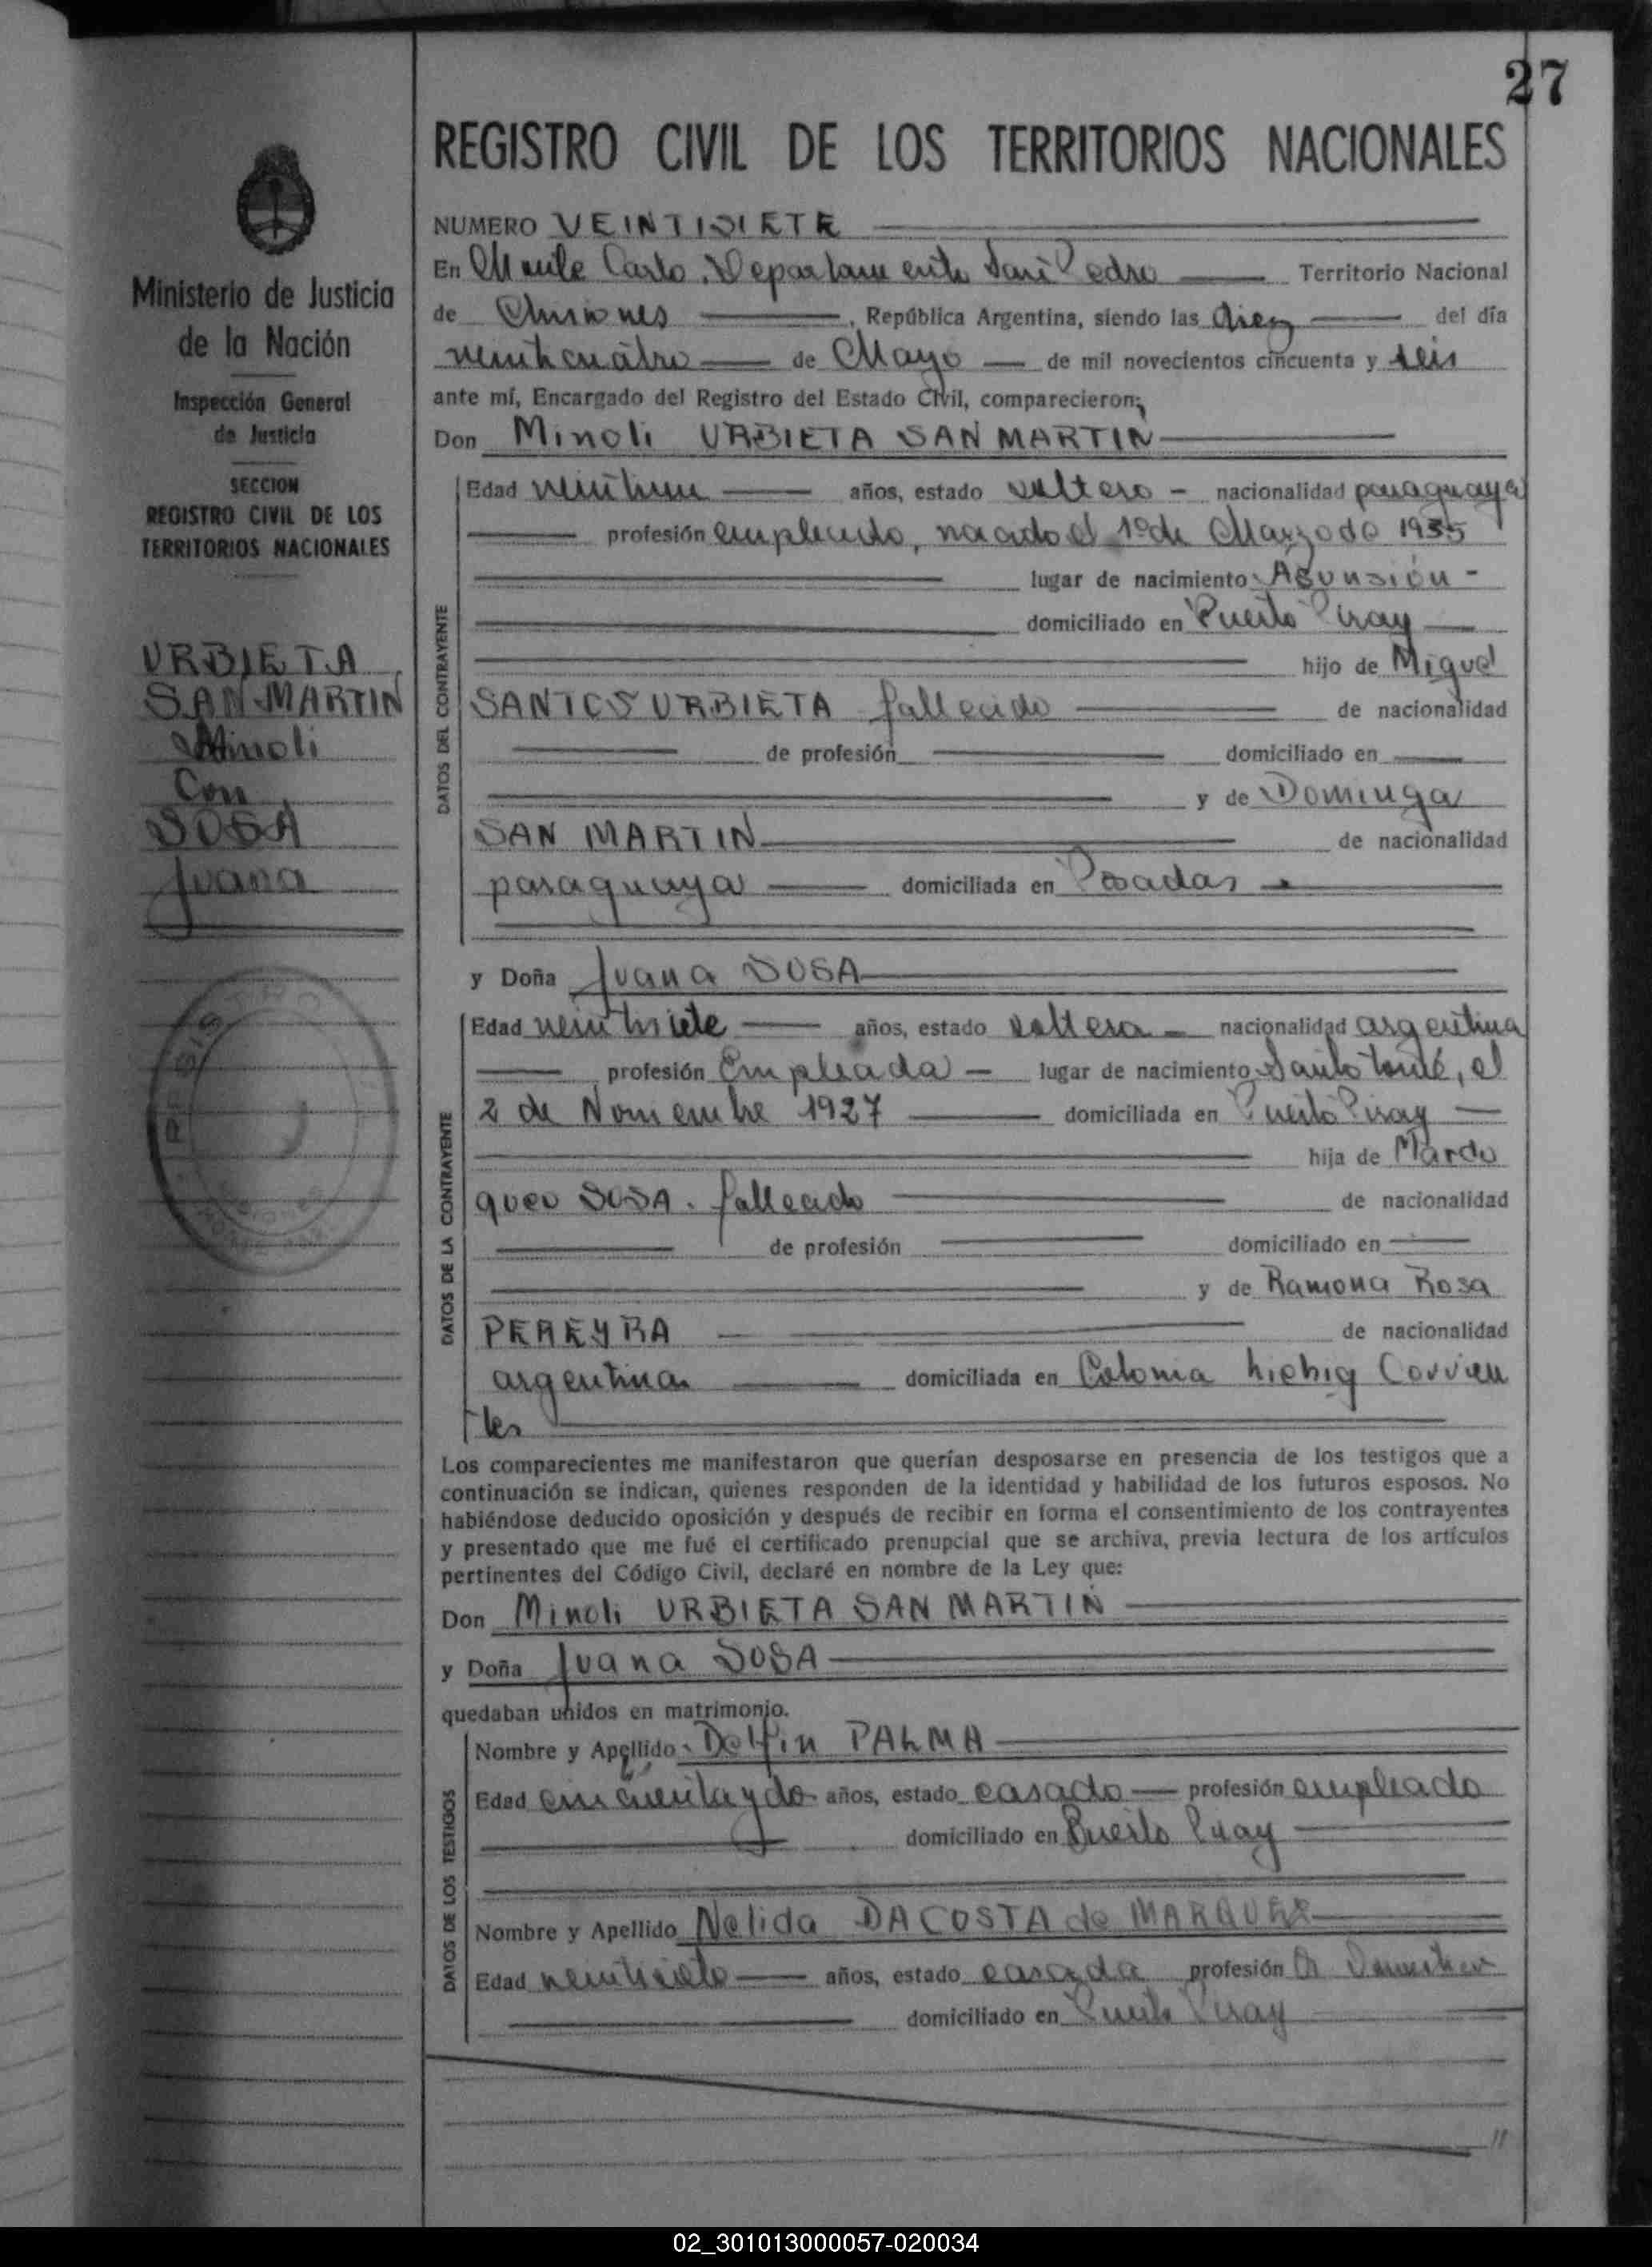 27
REGISTRO CIVIL DE LOS TERRITORIOS NACIONALES
Ministerio de Justicia
de la Nación
Inspección General
de Justicia
SECCION
REGISTRO CIVIL DE LOS
TERRITORIOS NACIONALES
URBIETA
SAN MARTIN
Minoli
Con
SOSA
Juana
NUMERO VEINTISIETE
En Monte Carlo. Departamento San Pedro Territorio Nacional
de Misiones, República Argentina, siendo las diez del día
veinticuatro de Mayo de mil novecientos cincuenta y seis
ante mí, Encargado del Registro del Estado Civil, comparecieron:
Don Minoli URBIETA SAN MARTIN
DATOS DEL CONTRAYENTE
Edad veintiun años, estado soltero - nacionalidad paraguaya
profesión empleado, nacido el 1º de Marzo de 1935
lugar de nacimiento Asunsión -
domiciliado en Puerto Piray
hijo de Miguel
SANTOS URBIETA fallecido de nacionalidad
de profesión domiciliado en
y de Dominga
SAN MARTIN de nacionalidad
paraguaya domiciliada en Posadas
y Doña Juana SOSA
DATOS DE LA CONTRAYENTE
Edad veintisiete años, estado soltera - nacionalidad argentina
profesión Empleada - lugar de nacimiento Santo tomé, el
2 de Noviembre 1927 domiciliada en Puerto Piray
hija de Mardo
queo SOSA. fallecido de nacionalidad
de profesión domiciliado en
y de Ramona Rosa
PEREYRA de nacionalidad
argentina domiciliada en Colonia Liebig Corrien
tes
Los comparecientes me manifestaron que querían desposarse en presencia de los testigos que a
continuación se indican, quienes responden de la identidad y habilidad de los futuros esposos. No
habiéndose deducido oposición y después de recibir en forma el consentimiento de los contrayentes
y presentado que me fué el certificado prenupcial que se archiva, previa lectura de los artículos
pertinentes del Código Civil, declaré en nombre de la Ley que:
Don Minoli URBIETA SAN MARTIN
y Doña Juana SOSA
quedaban unidos en matrimonio.
DATOS DE LOS TESTIGOS
Nombre y Apellido Delfin PALMA
Edad cincuenta y do años, estado casado profesión empleado
domiciliado en Puerto Piray
Nombre y Apellido Nelida DACOSTA de MARQUEZ
Edad años, estado casada profesión
domiciliado en Puerto Piray
02_301013000057-020034